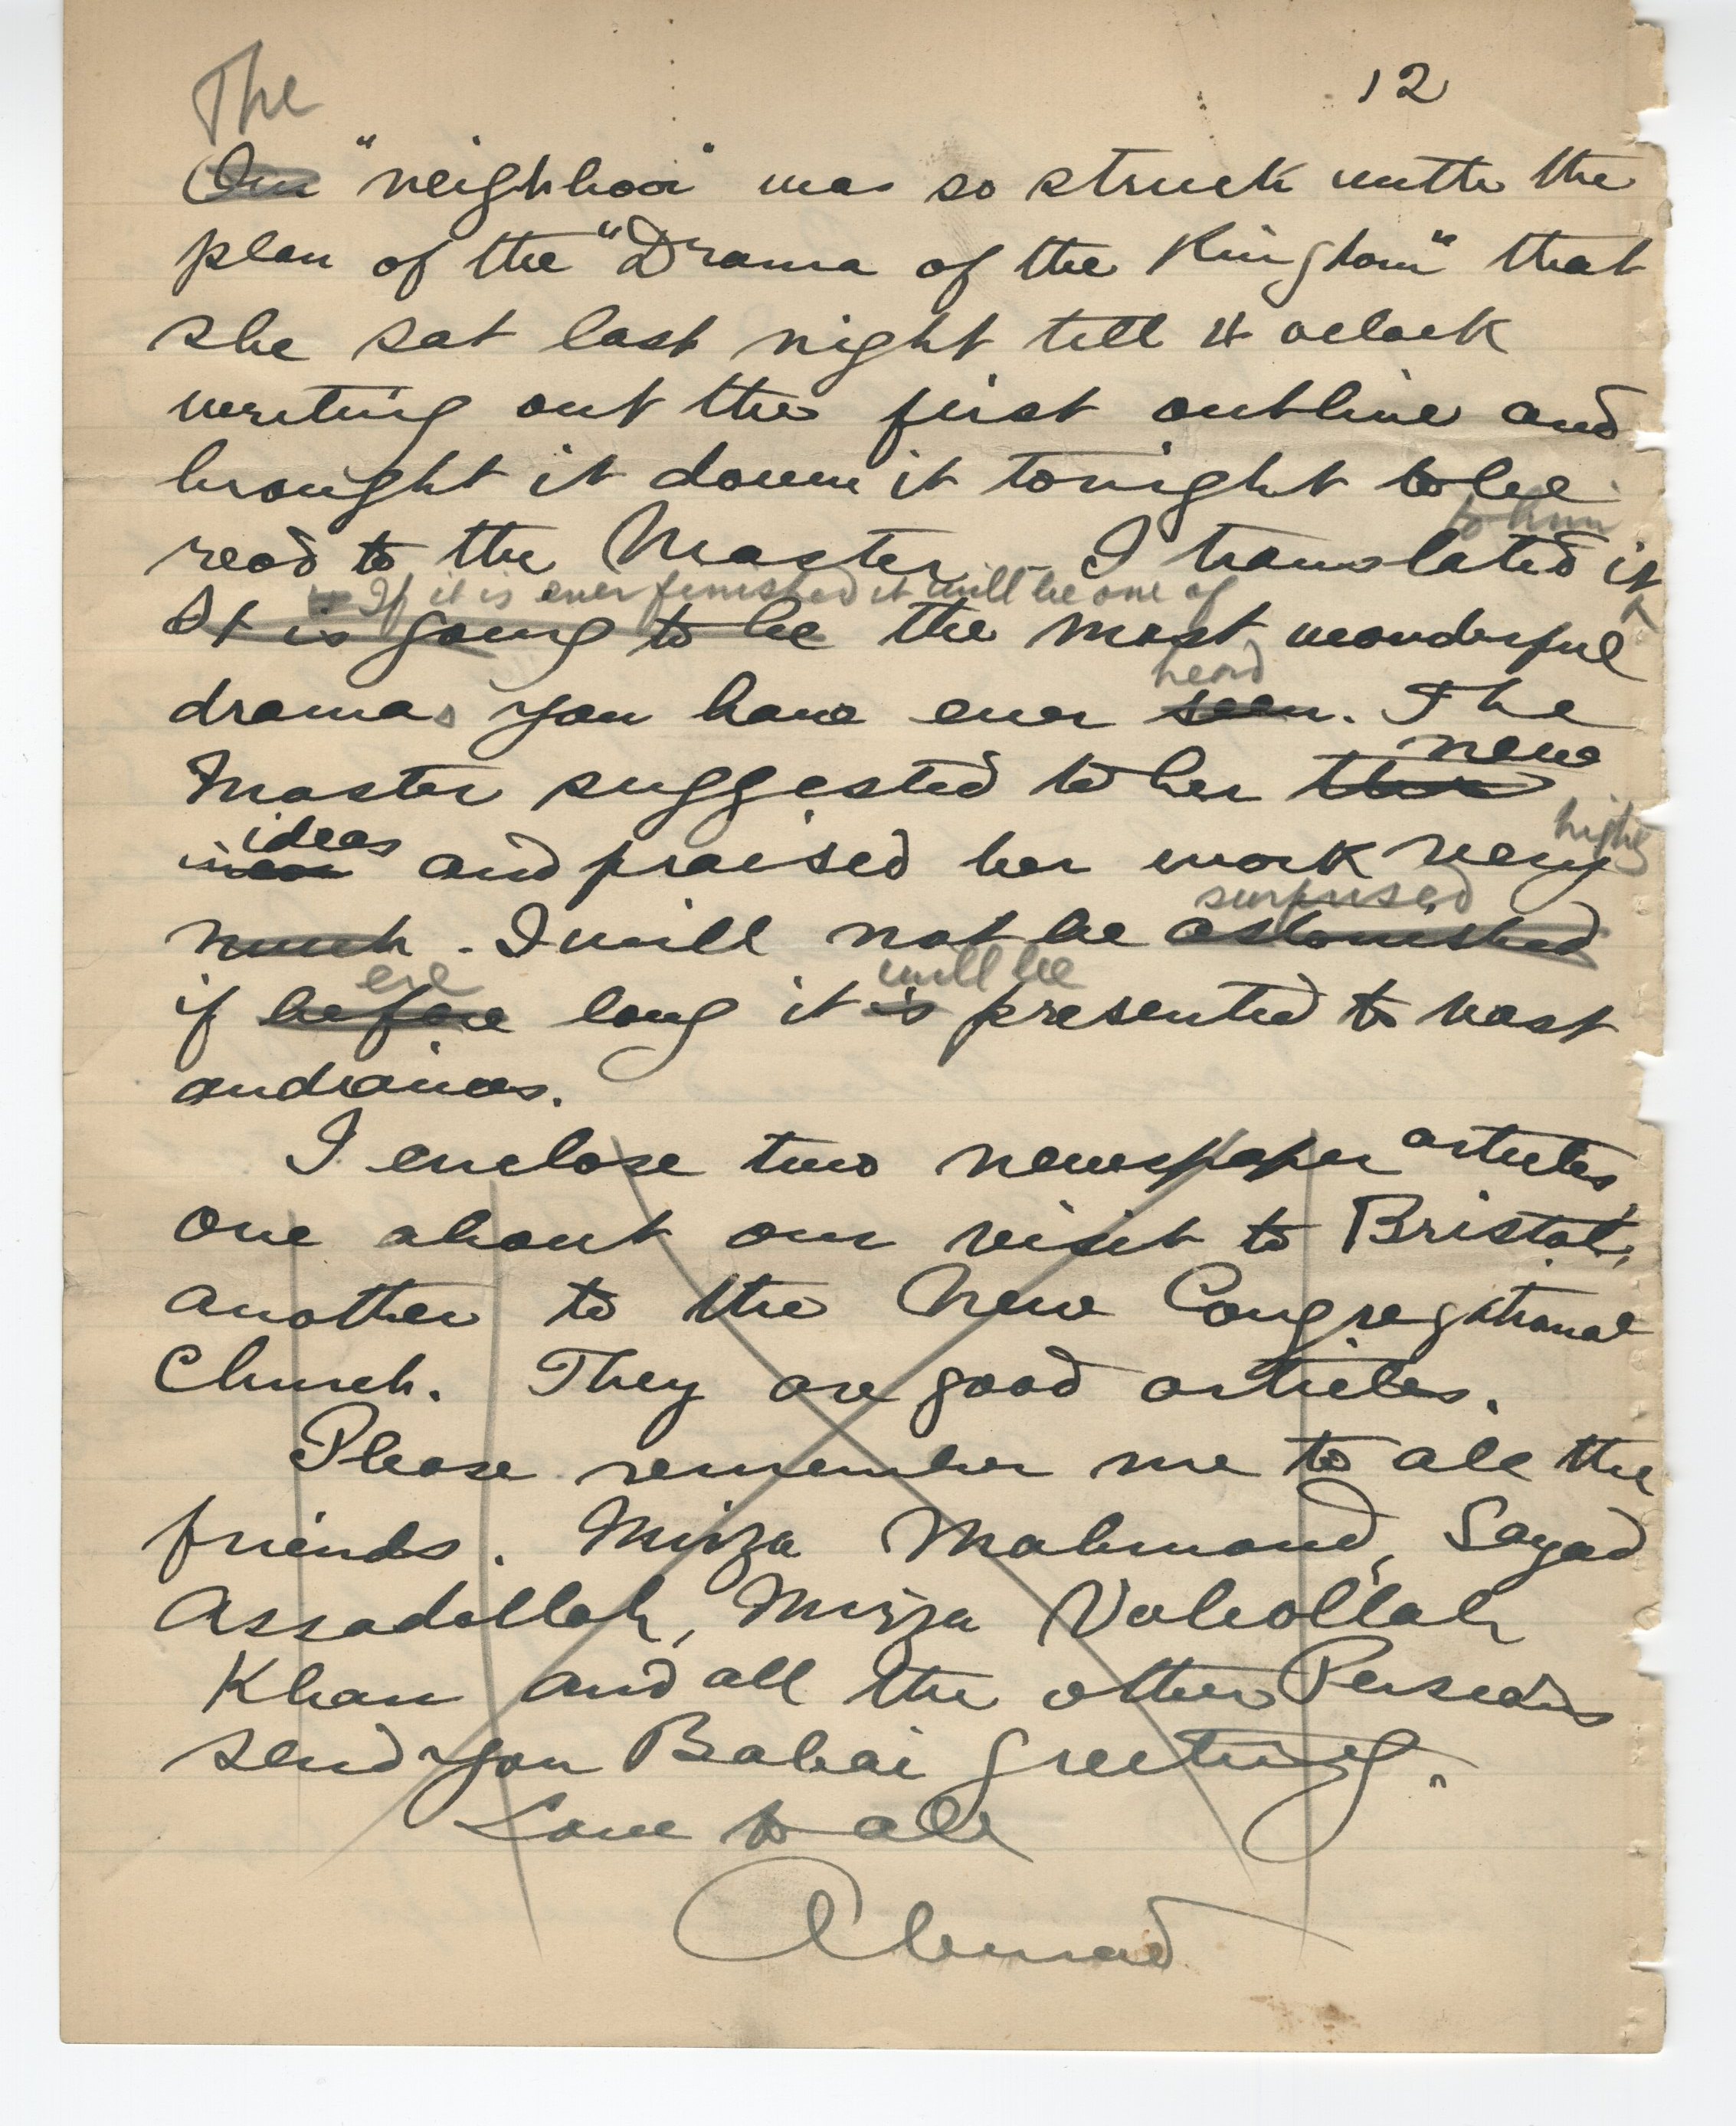 The
12
Our "neighbor" was so struck with the
plan of the "Drama of the Kingdom" that
she sat last night till 4 oclock
writing out the first outline and
brought it down it tonight to be
to him
read to the Master. I translated it
If it is ever finished it will be one of
It is going to be the most wonderful
heard
dramas you have ever seen. The
new
Master suggested to her
ideas highly
and praised her work very
surprised
much. I will not be astonished
ere will be
if before long it is presented to vast
audiences.
I enclose two newspaper articles,
one about our visit to Bristol,
another to the New Congregational
Church. They are good articles.
Please remember me to all the
friends. Mirza Mahmoud, Sayad
Assadollah, Mirza Valiollah
Khan and all the other Persians
send you Bahai greeting.
Love to all
Ahmad